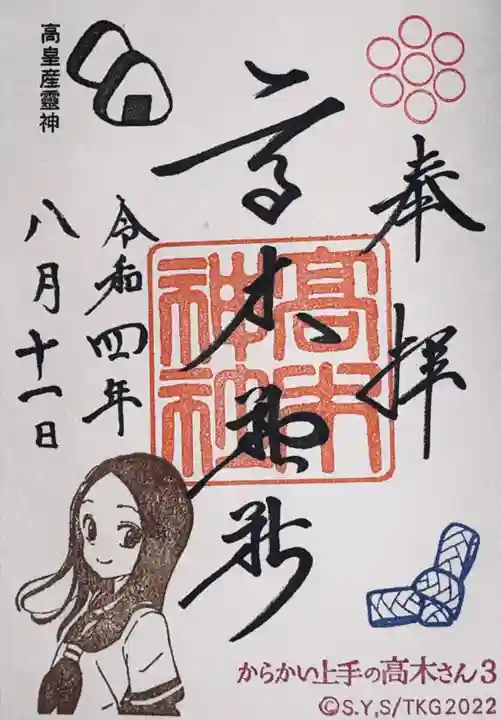 奉拝
高木神社
高木神社
高皇産靈神
令和四年
八月十一日
からかい上手の高木さん3
©S.Y,S/TKG2022